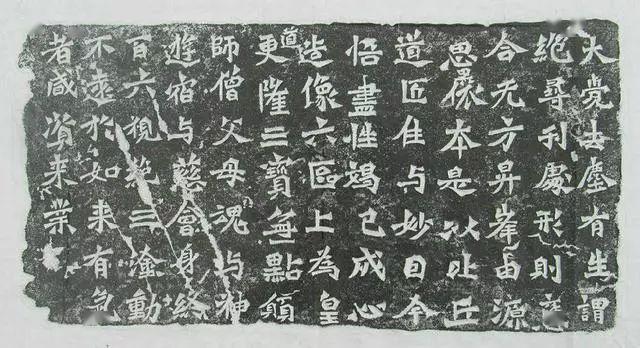 大覺去塵有生謂
絕尋刹處形則
合无方昇峯由源
思懷本是以比丘
道匠住与妙因今
悟盡性竭己成心
造像六區上為皇
道更隆三寶無點願
師僧父母魂与神
遊宿与慈會身終
百六視絕三塗動
不遠於如來有氣
者咸資來業